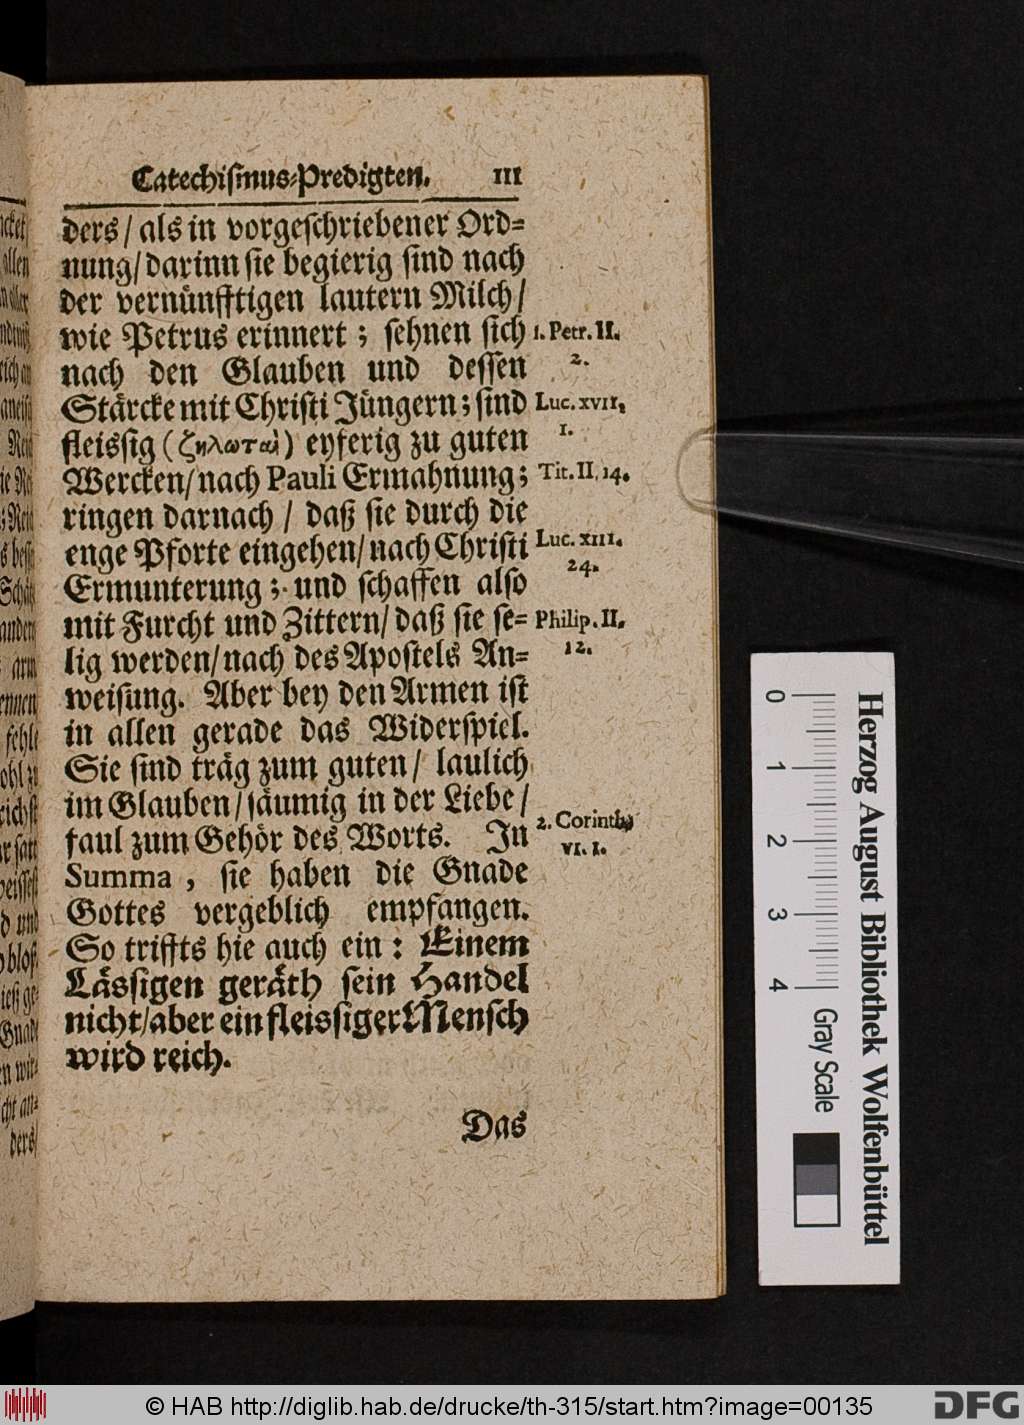 Catechismus-Predigten. 111
ders / als in vorgeschriebener Ord-
nung / darinn sie begierig sind nach
der vernünfftigen lautern Milch /
wie Petrus erinnert ; sehnen sich
1. Petr. II.
2.
nach den Glauben und dessen
Stärcke mit Christi Jüngern ; sind
Luc. XVII.
1.
fleissig (ζηλωταὶ) eyferig zu guten
Wercken / nach Pauli Ermahnung ;
Tit. II, 14.
ringen darnach / daß sie durch die
enge Pforte eingehen / nach Christi
Luc. XIII.
24.
Ermunterung ; und schaffen also
mit Furcht und Zittern / daß sie se-
Philip. II.
12.
lig werden / nach des Apostels An-
weisung. Aber bey den Armen ist
in allen gerade das Widerspiel.
Sie sind träg zum guten / laulich
im Glauben / säumig in der Liebe /
faul zum Gehör des Worts. In
2. Corinth.
VI. 1.
Summa , sie haben die Gnade
Gottes vergeblich empfangen.
So triffts hie auch ein : Einem
Lässigen geräth sein Handel
nicht / aber ein fleissiger Mensch
wird reich.
Das
0 1 2 3 4 Gray Scale
Herzog August Bibliothek Wolfenbüttel
© HAB http://diglib.hab.de/drucke/th-315/start.htm?image=00135
DFG